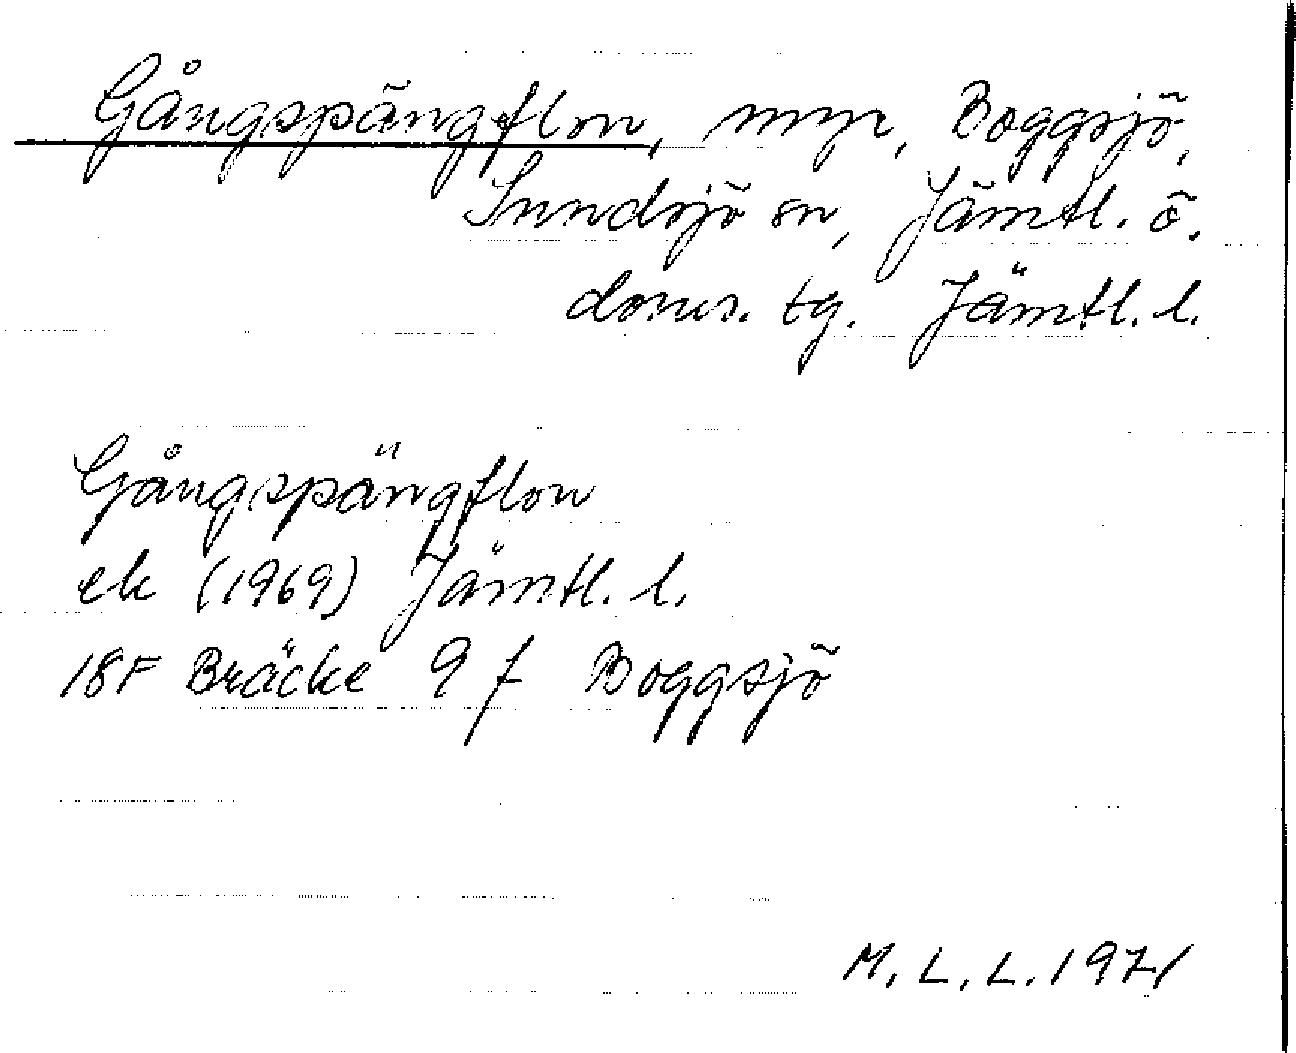 Gångspängflon, myr, Boggsjö,
Sundsjö sn, Jämtl. ö.
doms. tg. Jämtl. l.
Gångspängflon
ek (1969) Jämtl. l.
18F Bräcke 9 f Boggsjö
M. L. L. 1971